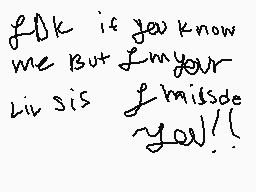 IDK if you know
me But Im your
Liv sis I missde
you!!